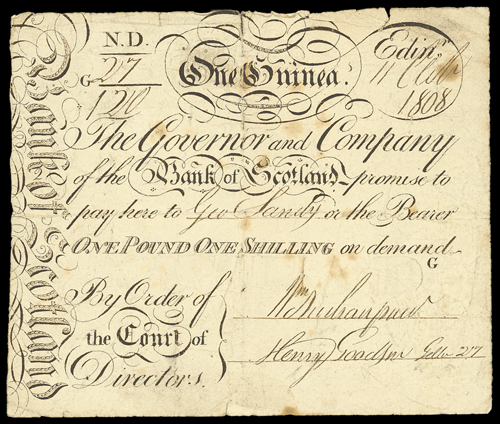 N.D.
G 27
120
One Guinea.
Edinr.
11 Octr.
1808
Bank of Scotland
The Governor and Company
of the Bank of Scotland promise to
pay here to Geo Sandy or the Bearer
ONE POUND ONE SHILLING on demand
G
By Order of
the Court of
Directors.
Wm
Henry Goodsir Teller 27